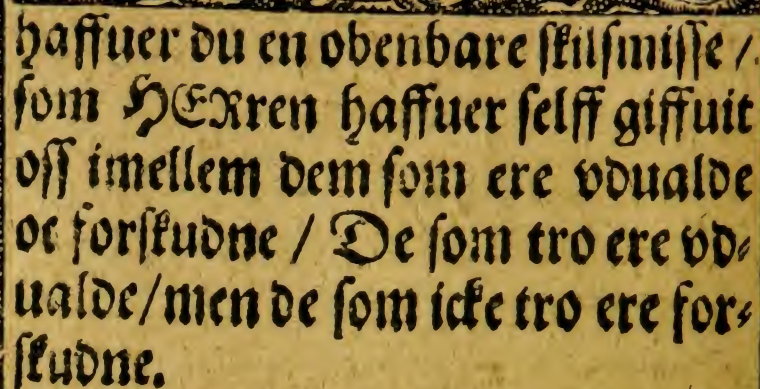 haffuer du en obenbare skilsmisse /
som HERren haffuer selff giffuit
oss imellem dem som ere vdualde
oc forskudne / De som tro ere vd-
ualde/men de som icke tro ere for-
skudne.